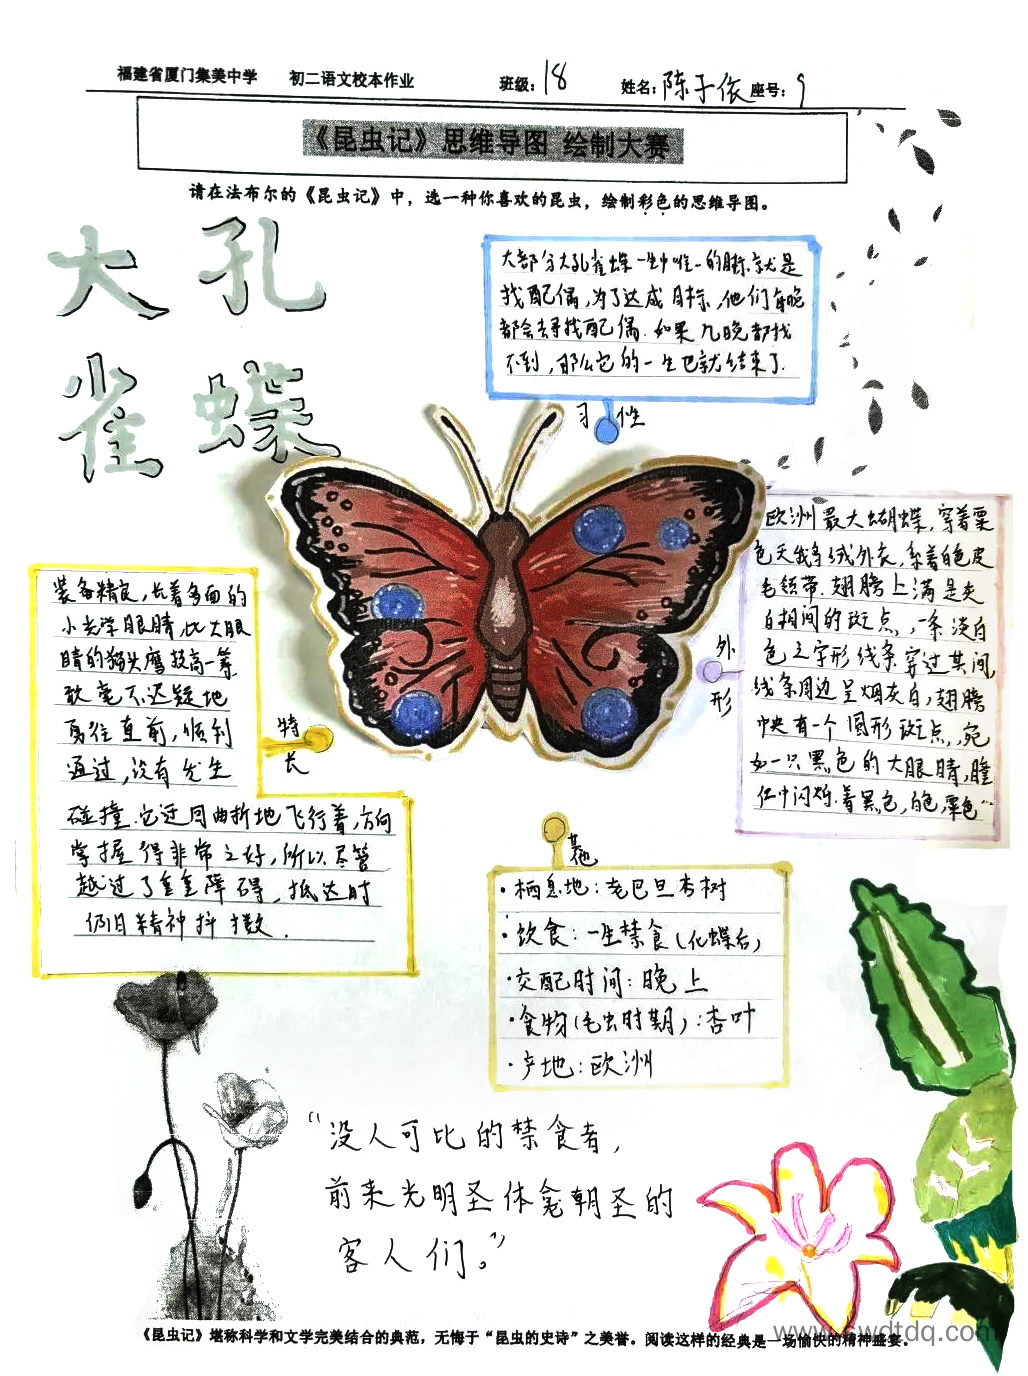 福建省厦门集美中学 初二语文校本作业 班级：18 姓名：陈于依 座号：9
《昆虫记》思维导图 绘制大赛
请在法布尔的《昆虫记》中，选一种你喜欢的昆虫，绘制彩色的思维导图。
大孔
雀蝶
大部分大孔雀蝶一生中唯一的目标就是
找配偶，为了达成目标，他们每晚
都会去寻找配偶．如果几晚都找
不到，那么它的一生也就结束了．
习性
欧洲最大蝴蝶，穿着栗
色天鹅绒外衣，系着白色皮
毛领带．翅膀上满是灰
白相间的斑点，一条淡白
色之字形线条穿过其间
线条周边呈烟灰白，翅膀
中央有一个圆形斑点，宛
如一只黑色的大眼睛，瞳
仁中闪烁着黑色，白色，栗色…
外形
装备精良，长着多面的
小光学眼睛比大眼
睛的猫头鹰技高一筹
敢毫不迟疑地
勇往直前，顺利
通过，没有发生
碰撞．它迂回曲折地飞行着，方向
掌握得非常之好，所以尽管
越过了重重障碍，抵达时
仍旧精神抖擞．
特长
其他
·栖息地：老巴旦杏树
·饮食：一生禁食（化蝶后）
·交配时间：晚上
·食物（毛虫时期）：杏叶
·产地：欧洲
“没人可比的禁食者，
前来光明圣体龛朝圣的
客人们。”
《昆虫记》堪称科学和文学完美结合的典范，无悔于“昆虫的史诗”之美誉。阅读这样的经典是一场愉快的精神盛宴。
www.swdtdq.com